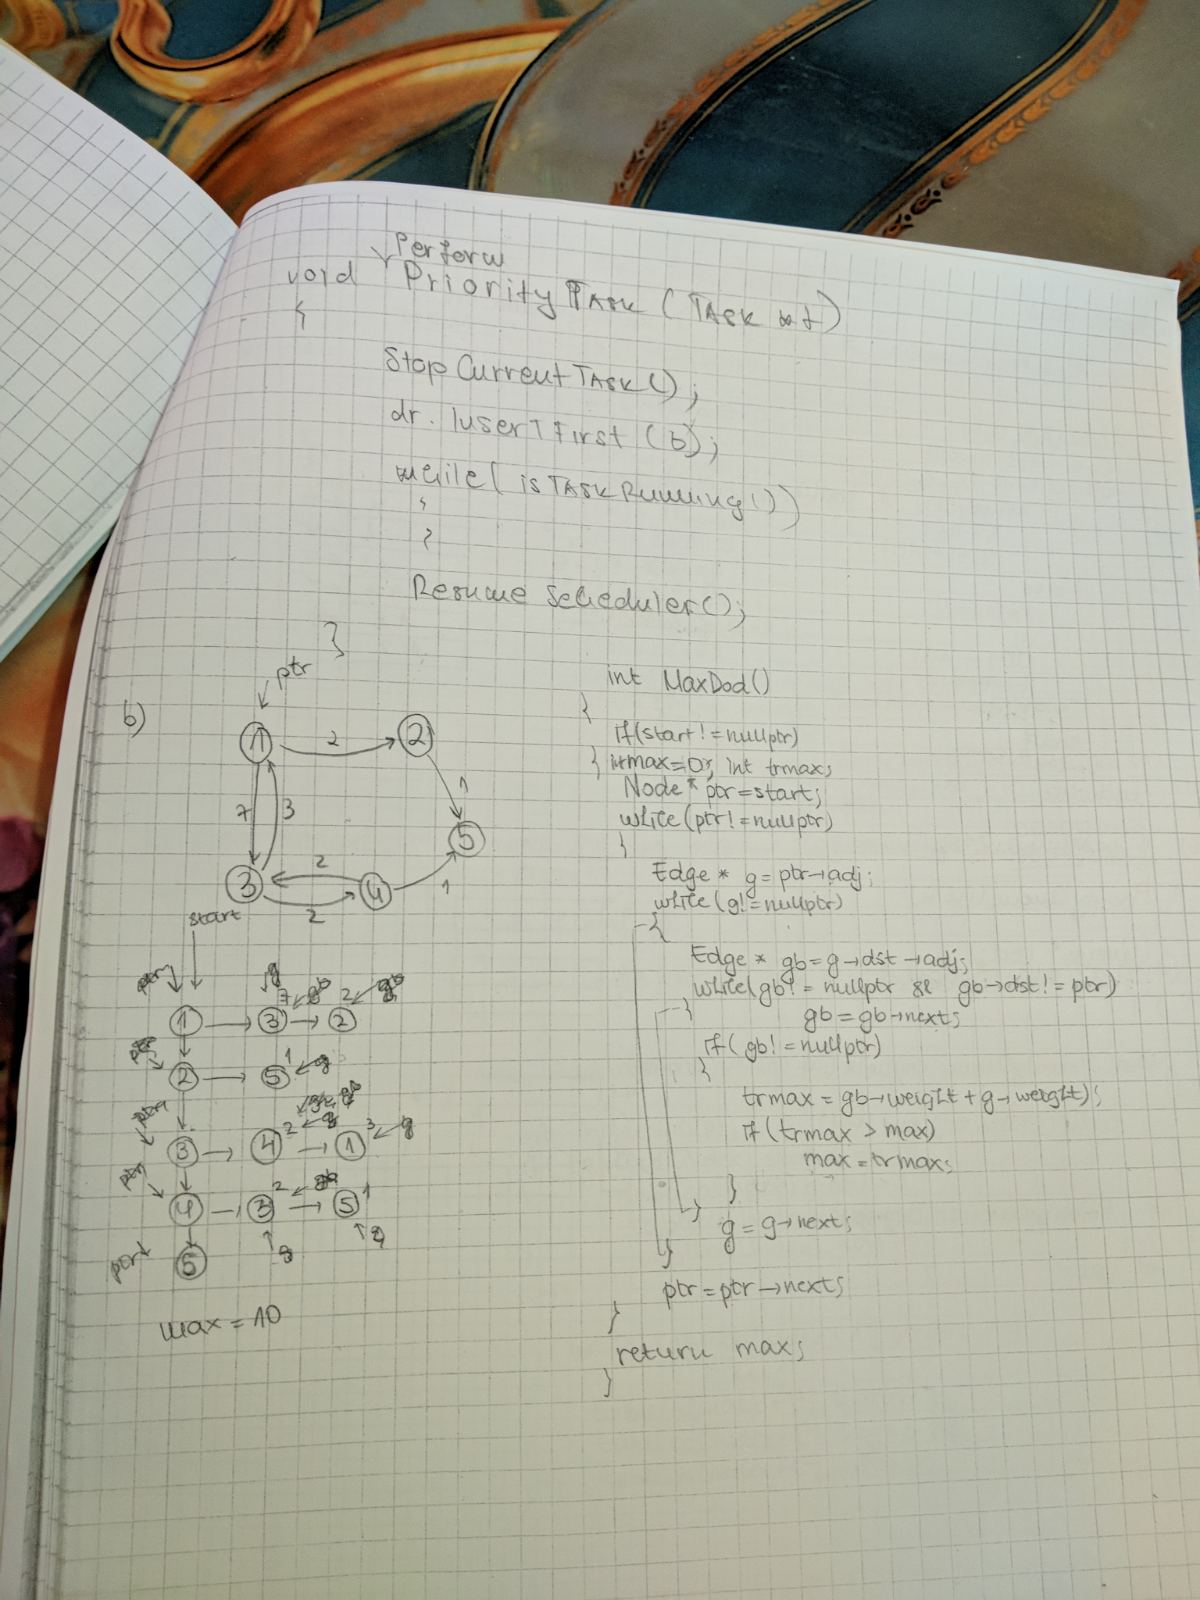 Perform
void Priority Task (Task *t)
{
Stop Current Task();
dr. Insert First (b);
while( is Task Running())
{
}
Resume Scheduler();
}
b)
ptr
1
2
2
7
3
1
5
3
2
2
4
1
start
ptr
g
7
gb
2
gb
1
3
2
ptr
2
5
1
g
ptr
gb
3
4
2
g
1
3
g
ptr
4
3
2
gb
5
1
g
g
ptr
5
max = 10
int MaxDod()
{
if(start! = nullptr)
{ int max=0; int trmax;
Node* ptr=start;
while(ptr! = nullptr)
{
Edge * g = ptr→adj;
while(g! = nullptr)
{
Edge * gb = g→dst→adj;
while(gb! = nullptr && gb→dst! = ptr)
{
gb = gb→next;
if( gb! = nullptr)
{
trmax = gb→weight + g→weight);
if(trmax > max)
max = trmax;
}
}
g = g→next;
}
ptr = ptr→next;
}
return max;
}